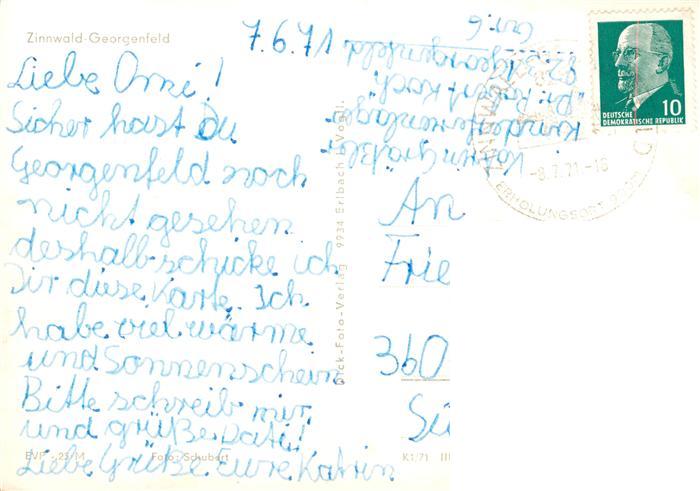 Zinnwald-Georgenfeld
7.6.71
Liebe Omi!
Sicher hast Du
Georgenfeld noch
nicht gesehen
deshalb schicke ich
Dir diese Karte. Ich
habe viel wärme
und Sonnenschein
Bitte schreib mir,
und grüße Vati!
Liebe Grüße Eure Katrin
EVP -,25/M Foto: Schubert K1/71 III
Bick-Foto-Verlag 9934 Erlbach (Vogtl.
Katrin Größler
Kinderferienlager
"Dr. Robert Koch"
Georgenfeld
10
DEUTSCHE
DEMOKRATISCHE REPUBLIK
-8.7.71.-16
ERHOLUNGSORT
An
Frie
360
Sü